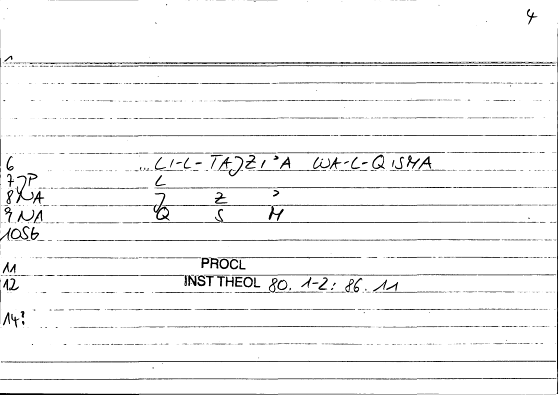 4
1
6 ... LI-L-TAJZI'A WA-L-QISMA
7 JP L
8 NA J Z '
9 NA Q S M
10 S6
11 PROCL
12 INST THEOL 80. 1-2: 86. 11
14?